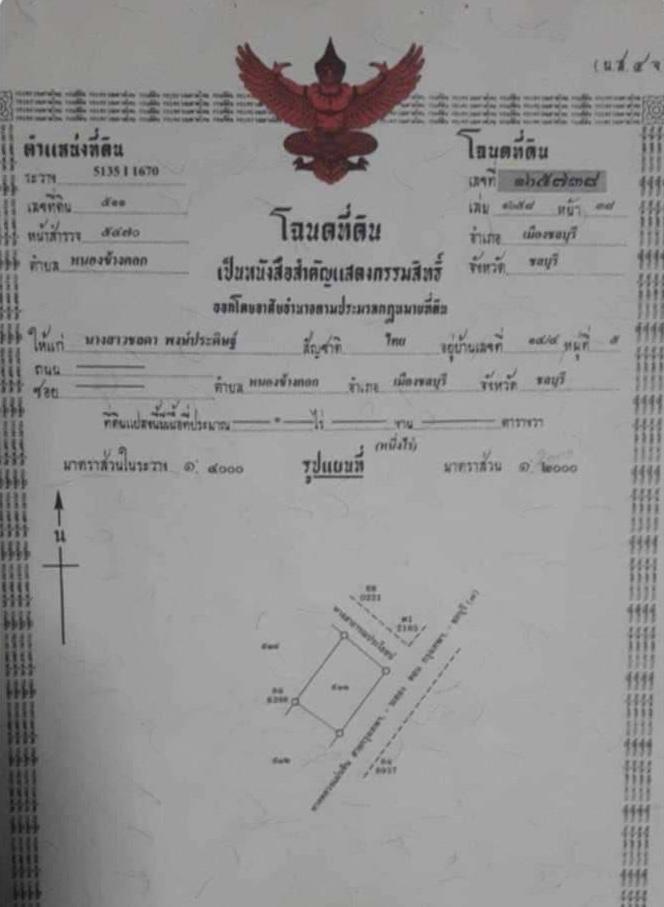 (น.ส. ๔ จ
ตำแหน่งที่ดิน
ระวาง 5135 I 1670
เลขที่ดิน ๕๑๑
หน้าสำรวจ ๕๔๗๐
ตำบล หนองข้างคอก
โฉนดที่ดิน
เลขที่ ๑๖๕๗๓๘
เล่ม ๑๖๕๘ หน้า ๓๘
อำเภอ เมืองชลบุรี
จังหวัด ชลบุรี
โฉนดที่ดิน
เป็นหนังสือสำคัญแสดงกรรมสิทธิ์
ออกโดยอาศัยอำนาจตามประมวลกฎหมายที่ดิน
ให้แก่ นางสาวชอดา พงษ์ประดิษฐ์ สัญชาติ ไทย อยู่บ้านเลขที่ ๑๔/๔ หมู่ที่ ๕
ถนน
ซอย ตำบล หนองข้างคอก อำเภอ เมืองชลบุรี จังหวัด ชลบุรี
ที่ดินแปลงนี้มีเนื้อที่ประมาณ ๑ ไร่ งาน ตารางวา
(หนึ่งไร่)
มาตราส่วนในระวาง ๑: ๔๐๐๐ รูปแผนที่ มาตราส่วน ๑: ๒๐๐๐
น
ทางสาธารณประโยชน์
๕๑๑